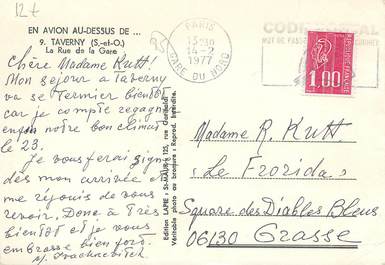 12t
95
EN AVION AU-DESSUS DE ...
9. TAVERNY (S.-et-O.)
La Rue de la Gare
Chère Madame Kutt!
Mon séjour a Taverny
va se termier bientôt
car je compte regagn
enfon notre bon climat
le 23.
Je vous ferai sign
dès mon arrivée et
me réjouis de vous
revoir. Donc à Très
bientôt et je vous
embrasse bien fort.
Edition LAPIE : St-MAUR
Véritable photo au bromure : Reprod. interdite.
PARIS
14-2
1977
GARE DU NORD
CODE POSTAL
MOT DE PASSE
1,00
Madame R. Kutt
"Le Frorida"
Square des Diables Bleus
06130 Grasse